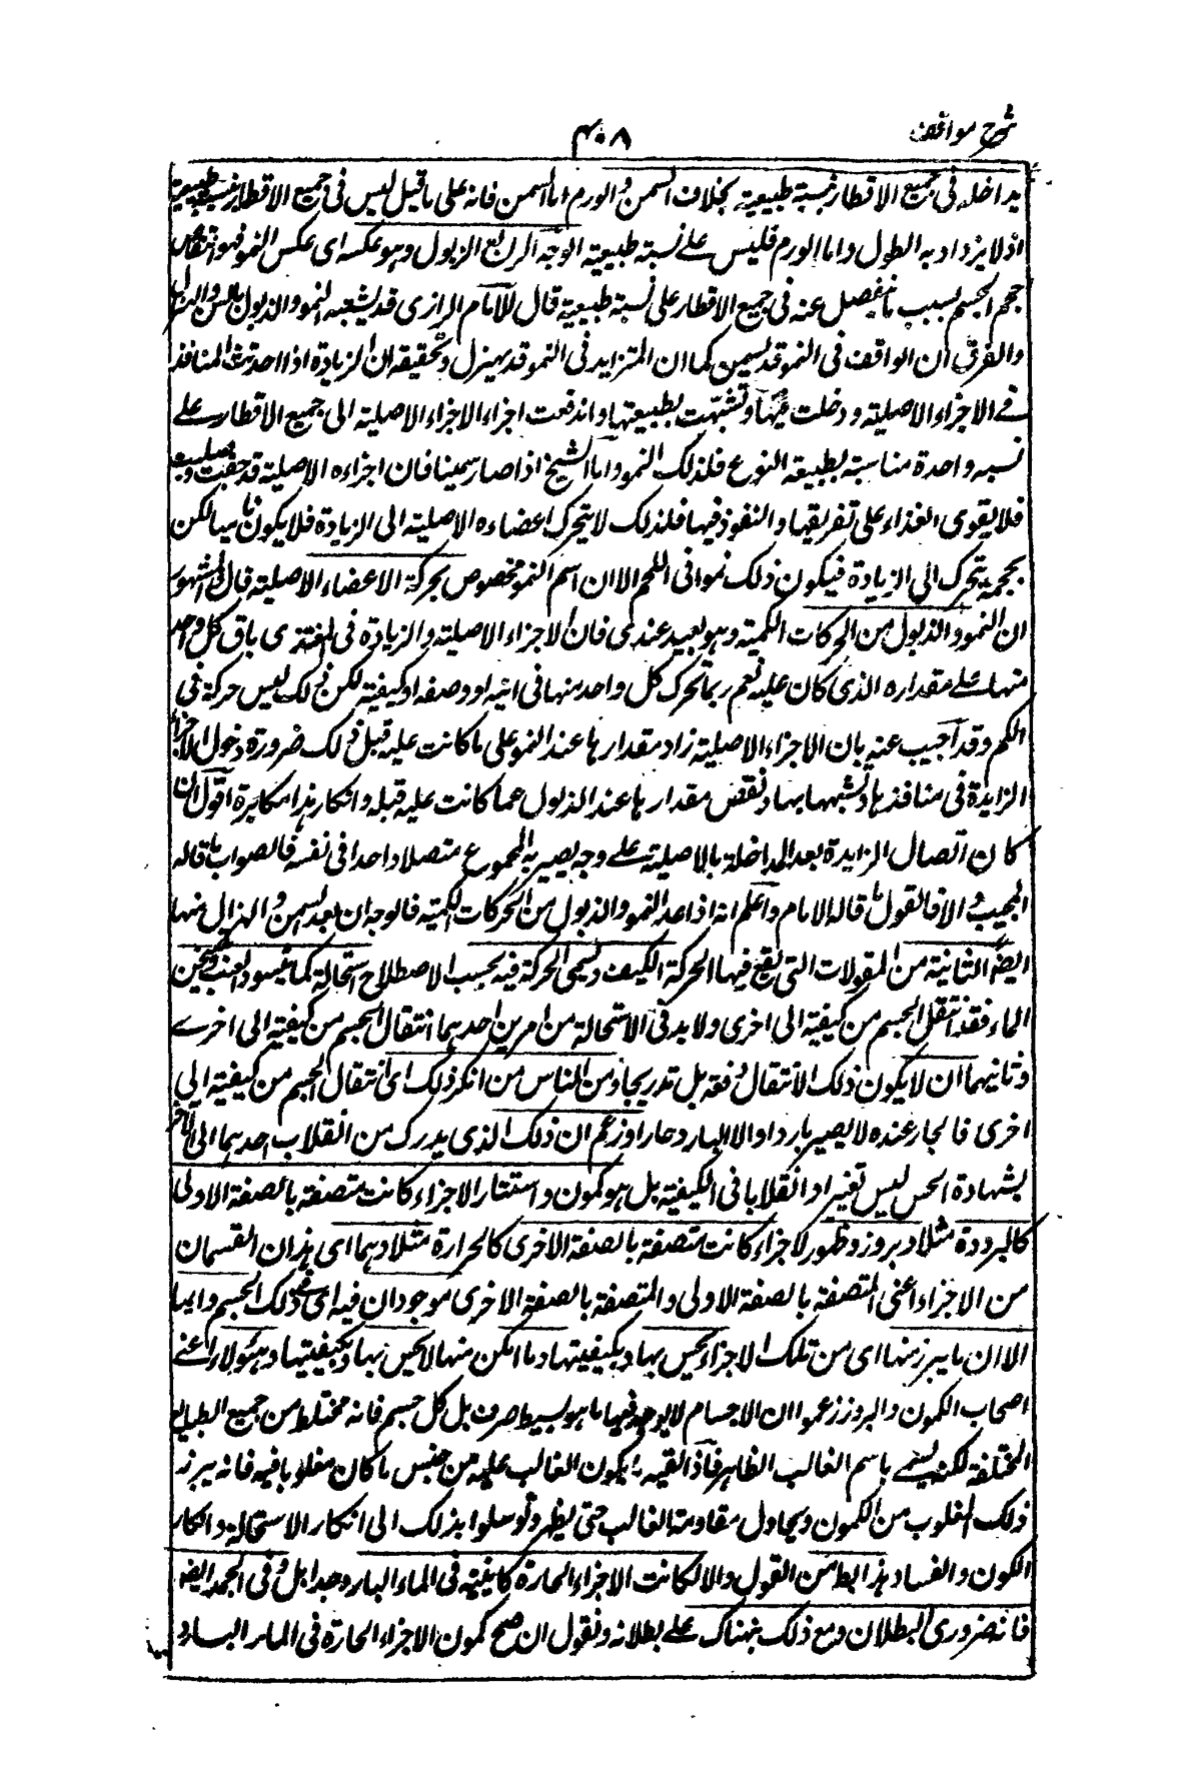 شرح مواقف
۴۰۸
يداخله فى جميع الاقطار نسبة طبيعية بخلاف السمن والورم اما السمن فانه على ما قيل ليس فى جميع الاقطار نسبة طبيعية
اذ لا يزداد به الطول واما الورم فليس على نسبة طبيعية الوجه الرابع الذبول وهو عكسه اى عكس النمو فهو انتقاص
حجم الجسم بسبب ما ينفصل عنه فى جميع الاقطار على نسبة طبيعية قال الامام الرازى قد يشتبه النمو والذبول بالسمن والهزال
والفرق ان الواقف فى النمو قد يسمن كما ان المتزايد فى النمو قد يهزل وتحقيقه ان الزيادة اذا احدثت المنافذ
فى الاجزاء الاصلية ودخلت فيها وتشبهت بطبيعتها واندفعت اجزاء الاجزاء الاصلية الى جميع الاقطار على
نسبة واحدة مناسبة بطبيعة النوع فلذلك النمو واما الشيخ اذا صار سمينا فان اجزاءه الاصلية قد جفت وصلبت
فلا يقوى الغذاء على تفريقها والنفوذ فيها فلذلك لا يتحرك اعضاءه الاصلية الى الزيادة فلا يكون ناميا لكن
لحمه يتحرك الى الزيادة فيكون ذلك نموا فى اللحم الا ان اسم النمو مخصوص بحركة الاعضاء الاصلية قال والمشهور
ان النمو والذبول من الحركات الكمية وهو بعيد عندى فان الاجزاء الاصلية والزيادة فى المغتذى باق كل واحد
منها على مقداره الذى كان عليه نعم ربما تحرك كل واحد منها فى اينه او وصفه او كيفيته لكن ذلك ليس حركة فى
الكم وقد اجيب عنه بان الاجزاء الاصلية زاد مقدارها عند النمو على ما كانت عليه قبل ذلك ضرورة دخول الاجزاء
الزايدة فى منافذها وتشبهها بها ونقص مقدارها عند الذبول عما كانت عليه قبله وانكار هذا مكابرة اقول ان
كان اتصال الزايدة بعد المداخلة بالاصلية على وجه يصير به المجموع متصلا واحدا فى نفسه فالصواب ما قاله
المجيب والا فالقول ما قاله الامام واعلم انه اذا عد النمو والذبول من الحركات الكمية فالوجه ان يعد السمن والهزال منها
ايضا الثانية من المقولات التى يقع فيها الحركة الكيف وتسمى الحركة فيه بحسب الاصطلاح استحالة كما يتسود العنب ويتسخن
الماء فقد انتقل الجسم من كيفية الى اخرى ولا بد فى الاستحالة من امرين احدهما انتقال الجسم من كيفية الى اخرى
وثانيهما ان لا يكون ذلك الانتقال دفعة بل تدريجا ومن الناس من انكر ذلك اى انتقال الجسم من كيفية الى
اخرى فالحار عنده لا يصير باردا ولا البارد حارا وزعم ان ذلك الذى يدرك من انقلاب احدهما الى الآخر
بشهادة الحس ليس تغيرا وانقلابا فى الكيفية بل هو كمون واستتار لاجزاء كانت متصفة بالصفة الاولى
كالبرودة مثلا وبروز وظهور لاجزاء كانت متصفة بالصفة الاخرى كالحرارة مثلا وهما اى هذان القسمان
من الاجزاء اعنى المتصفة بالصفة الاولى والمتصفة بالصفة الاخرى موجودان فيه اى فى ذلك الجسم دائما
الا ان ما يبرز منها اى من تلك الاجزاء يحس بها وبكيفيتها وما كمن منها لا يحس بها وبكيفيتها وهؤلاء اعنى
اصحاب الكمون والبروز زعموا ان الاجسام لا يوجد فيها ما هو بسيط صرف بل كل جسم فانه مختلط من جميع الطبايع
المختلفة لكنه يسمى باسم الغالب الظاهر فاذا لقيه ما يكون الغالب عليه من جنس ما كان مغلوبا فيه فانه يبرز
ذلك المغلوب من الكمون ويحاول مقاومة الغالب حتى يظهر وتوسلوا بذلك الى انكار الاستحالة وانكار
الكون والفساد وهذا ابطل من القول والا لكانت الاجزاء الحارة كامنة فى الماء البارد جدا بل وفى الجمد ايضا
فانه ضرورى البطلان ومع ذلك ننبهناك على بطلانه ونقول ان صح كمون الاجزاء الحارة فى الماء البارد